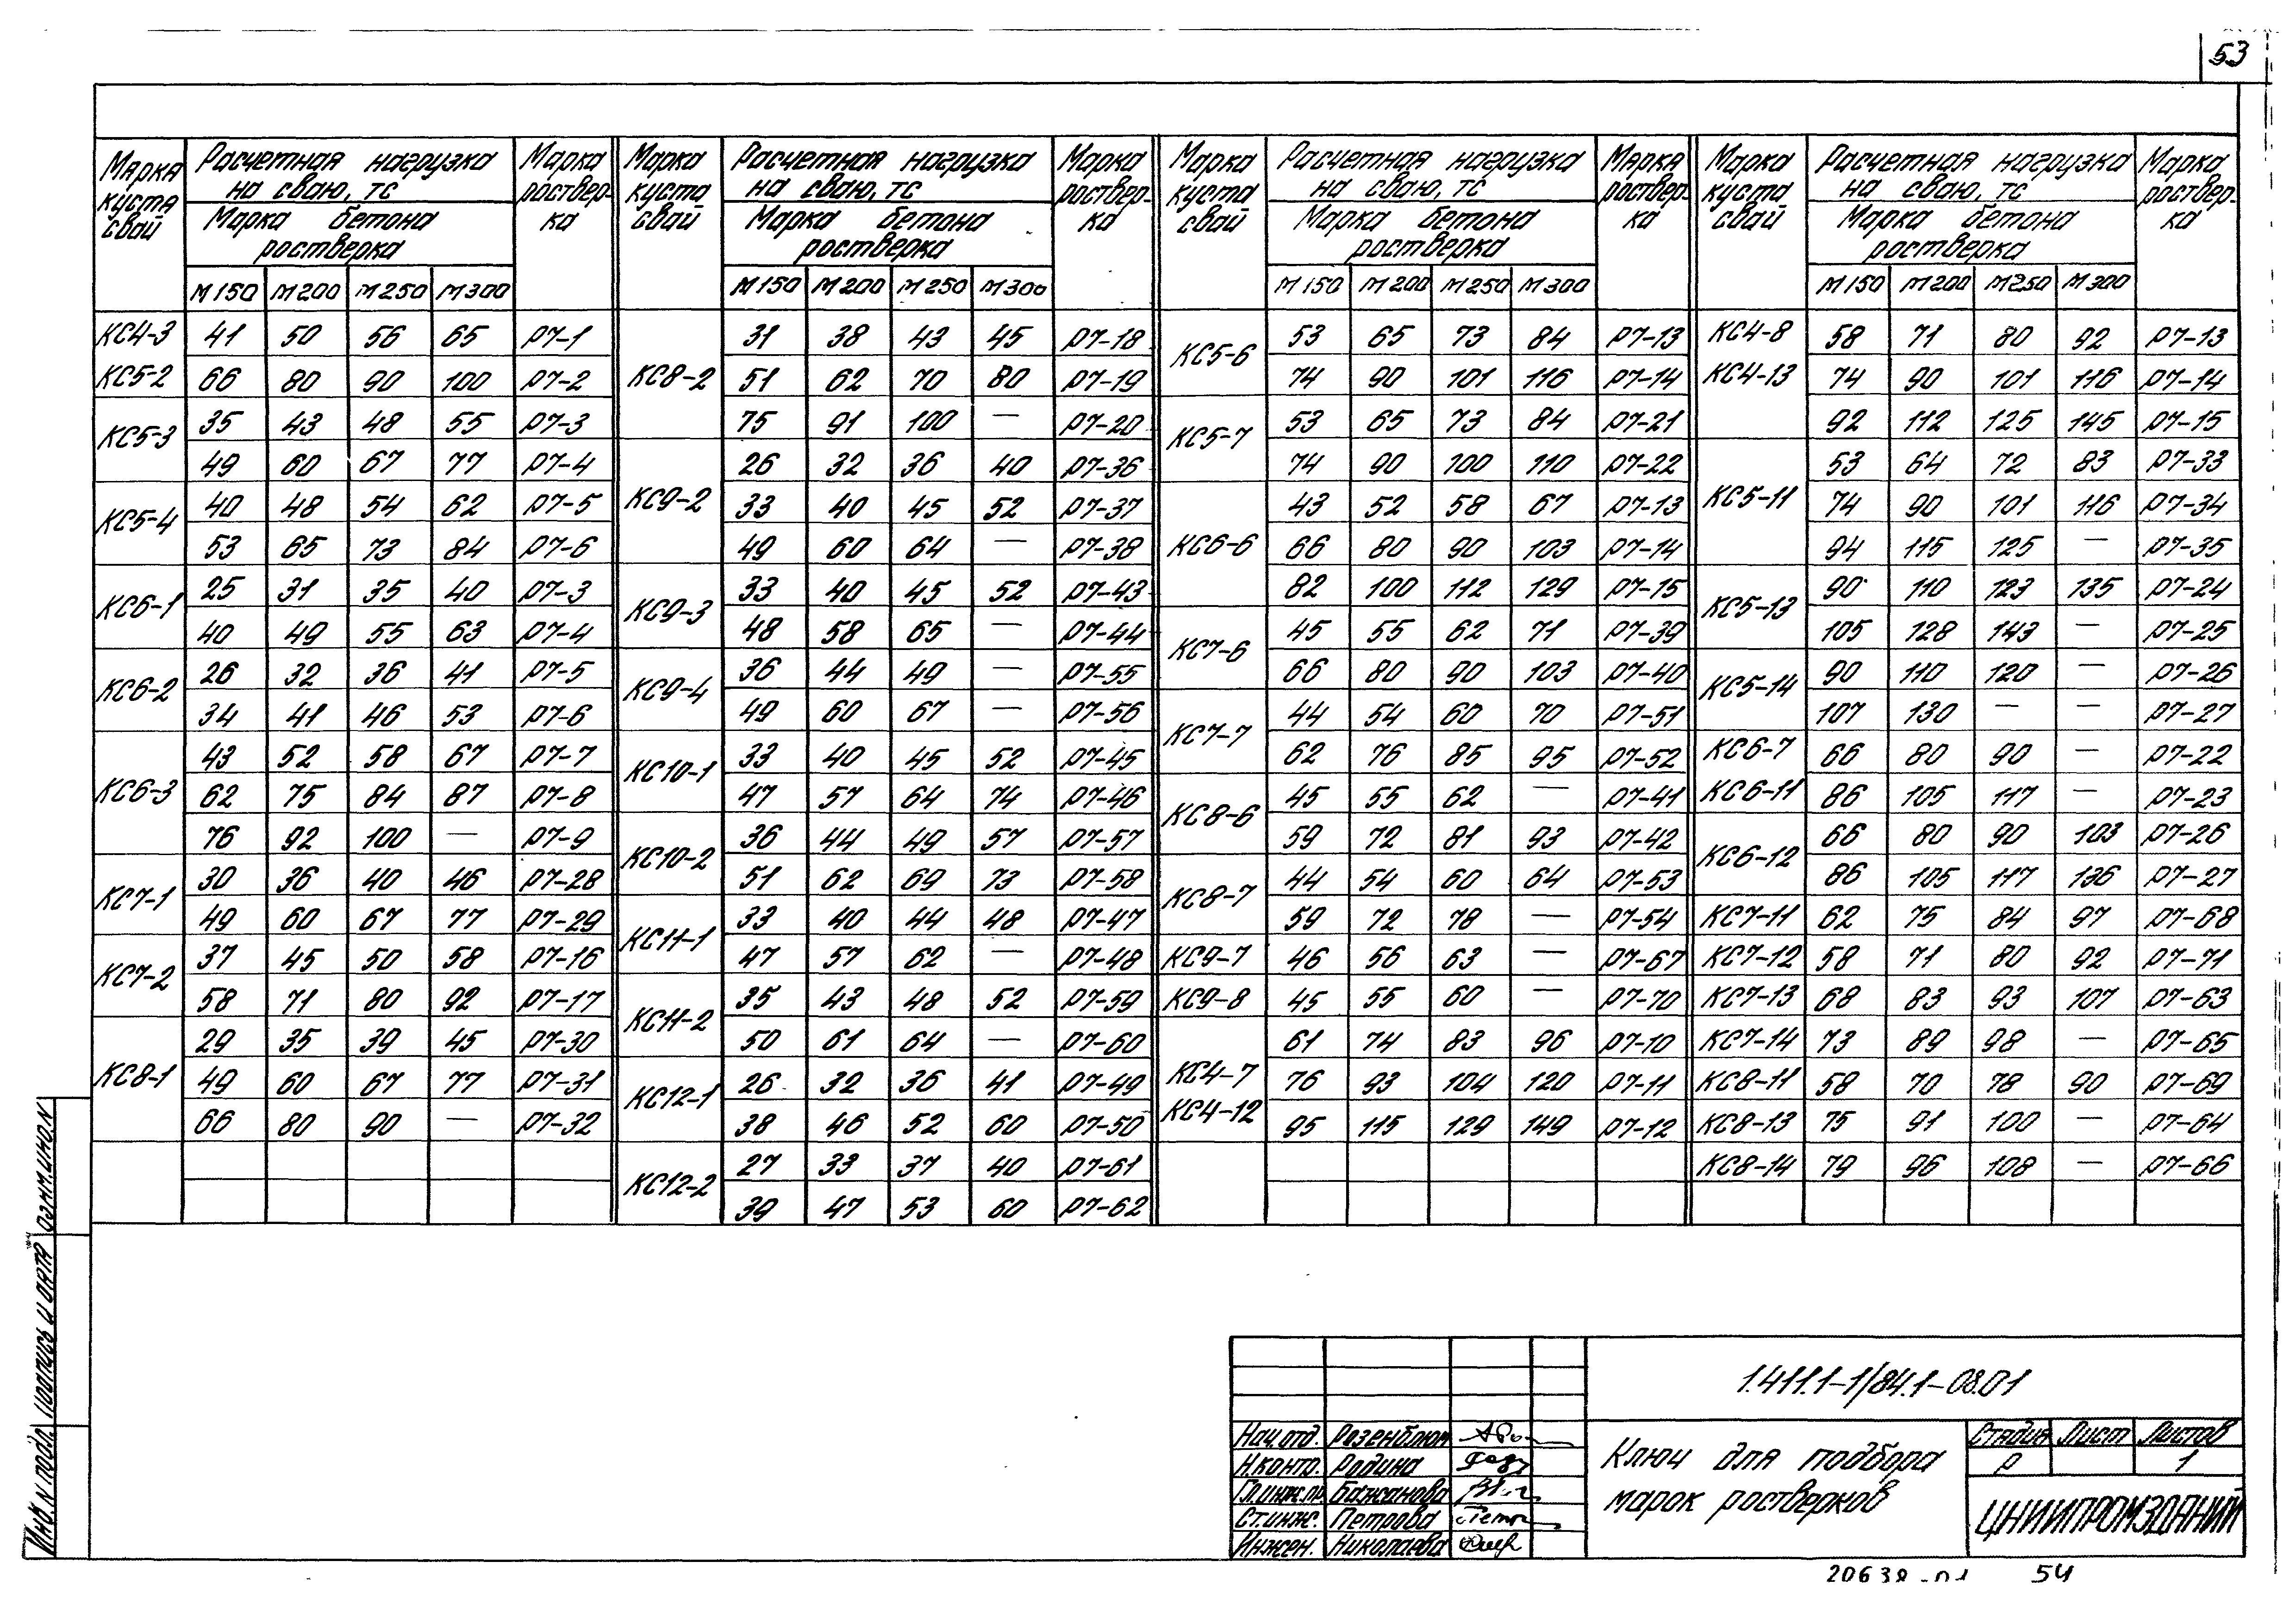 53
Марка куста свай | Расчетная нагрузка на сваю, тс | Марка роствер-ка | Марка куста свай | Расчетная нагрузка на сваю, тс | Марка роствер-ка | Марка куста свай | Расчетная нагрузка на сваю, тс | Марка роствер-ка | Марка куста свай | Расчетная нагрузка на сваю, тс | Марка роствер-ка
Марка бетона ростверка | Марка бетона ростверка | Марка бетона ростверка | Марка бетона ростверка
М150 М200 М250 М300 | М150 М200 М250 М300 | М150 М200 М250 М300 | М150 М200 М250 М300
КС4-3 41 50 56 65 Р7-1
КС5-2 66 80 90 100 Р7-2
КС5-3 35 43 48 55 Р7-3
49 60 67 77 Р7-4
КС5-4 40 48 54 62 Р7-5
53 65 73 84 Р7-6
КС6-1 25 31 35 40 Р7-3
40 49 55 63 Р7-4
КС6-2 26 32 36 41 Р7-5
34 41 46 53 Р7-6
КС6-3 43 52 58 67 Р7-7
62 75 84 87 Р7-8
76 92 100 — Р7-9
КС7-1 30 36 40 46 Р7-28
49 60 67 77 Р7-29
КС7-2 37 45 50 58 Р7-16
58 71 80 92 Р7-17
КС8-1 29 35 39 45 Р7-30
49 60 67 77 Р7-31
66 80 90 — Р7-32
КС8-2 31 38 43 45 Р7-18
51 62 70 80 Р7-19
75 91 100 — Р7-20
КС9-2 26 32 36 40 Р7-36
33 40 45 52 Р7-37
49 60 64 — Р7-38
КС9-3 33 40 45 52 Р7-43
48 58 65 — Р7-44
КС9-4 36 44 49 — Р7-55
49 60 67 — Р7-56
КС10-1 33 40 45 52 Р7-45
47 57 64 74 Р7-46
КС10-2 36 44 49 57 Р7-57
51 62 69 73 Р7-58
КС11-1 33 40 44 48 Р7-47
47 57 62 — Р7-48
КС11-2 35 43 48 52 Р7-59
50 61 64 — Р7-60
КС12-1 26 32 36 41 Р7-49
38 46 52 60 Р7-50
КС12-2 27 33 37 40 Р7-61
39 47 53 60 Р7-62
КС5-6 53 65 73 84 Р7-13
74 90 101 116 Р7-14
КС5-7 53 65 73 84 Р7-21
74 90 100 110 Р7-22
КС6-6 43 52 58 67 Р7-13
66 80 90 103 Р7-14
82 100 112 129 Р7-15
КС7-6 45 55 62 71 Р7-39
66 80 90 103 Р7-40
КС7-7 44 54 60 70 Р7-51
62 76 85 95 Р7-52
КС8-6 45 55 62 — Р7-41
59 72 81 93 Р7-42
КС8-7 44 54 60 64 Р7-53
59 72 78 — Р7-54
КС9-7 46 56 63 — Р7-67
КС9-8 45 55 60 — Р7-70
61 74 83 96 Р7-10
КС4-7 76 93 104 120 Р7-11
КС4-12 95 115 129 149 Р7-12
КС4-8 58 71 80 92 Р7-13
КС4-13 74 90 101 116 Р7-14
92 112 125 145 Р7-15
КС5-11 53 64 72 83 Р7-33
74 90 101 116 Р7-34
94 115 125 — Р7-35
КС5-13 90 110 123 135 Р7-24
105 128 143 — Р7-25
КС5-14 90 110 120 — Р7-26
107 130 — — Р7-27
КС6-7 66 80 90 — Р7-22
КС6-11 86 105 117 — Р7-23
КС6-12 66 80 90 103 Р7-26
86 105 117 136 Р7-27
КС7-11 62 75 84 97 Р7-68
КС7-12 58 71 80 92 Р7-71
КС7-13 68 83 93 107 Р7-63
КС7-14 73 89 98 — Р7-65
КС8-11 58 70 78 90 Р7-69
КС8-13 75 91 100 — Р7-64
КС8-14 79 96 108 — Р7-66
Инв. N подл. Подпись и дата Взам.инв.N
1.411.1-1/84.1-08.01
Нач.отд. Розенблюм
Н.контр. Родина
Гл.инж.пр. Бажанова
Ст.инж. Петрова
Инжен. Николаева
Ключ для подбора
марок ростверков
Стадия Лист Листов
Р 1
ЦНИИПРОМЗДАНИЙ
20638-01 54